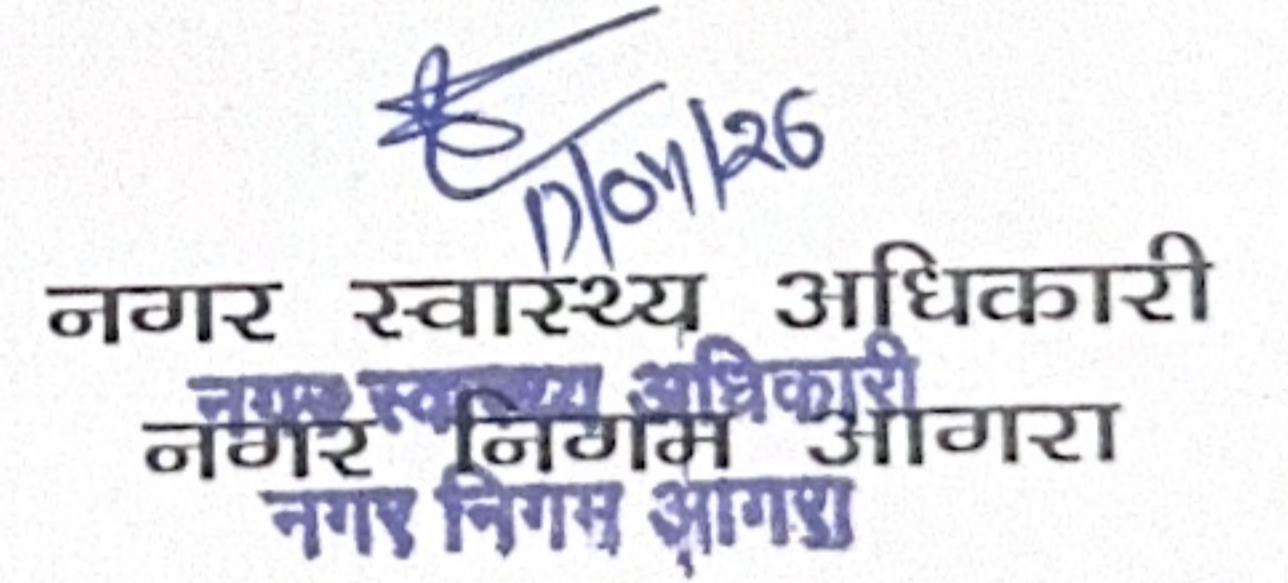 17/04/26
नगर स्वास्थ्य अधिकारी
नगर स्वास्थ्य अधिकारी
नगर निगम आगरा
नगर निगम आगरा